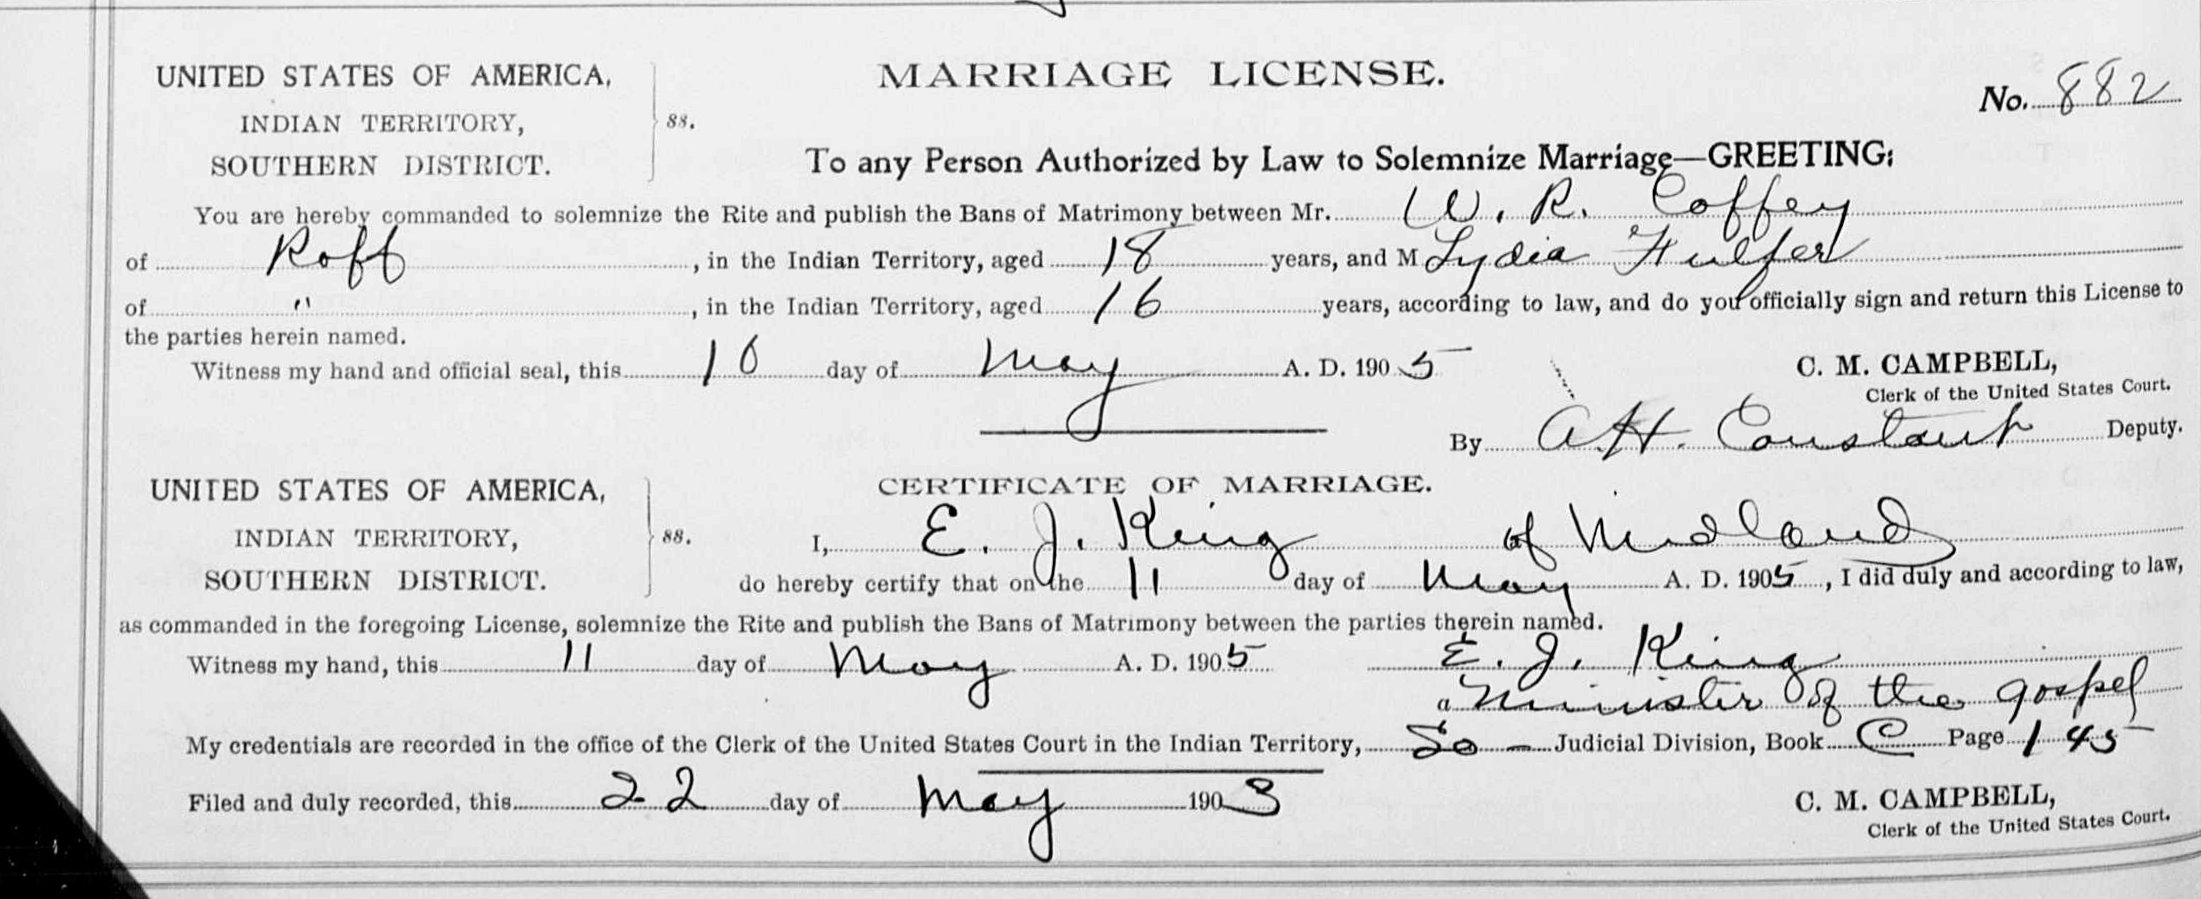 UNITED STATES OF AMERICA,
INDIAN TERRITORY,
SOUTHERN DISTRICT.
ss.
MARRIAGE LICENSE.
No. 882
To any Person Authorized by Law to Solemnize Marriage—GREETING:
You are hereby commanded to solemnize the Rite and publish the Bans of Matrimony between Mr. W. R. Coffey
of Roff, in the Indian Territory, aged 18 years, and M Lydia Fulfer
of ", in the Indian Territory, aged 16 years, according to law, and do you officially sign and return this License to
the parties herein named.
Witness my hand and official seal, this 10 day of May A. D. 1905
C. M. CAMPBELL,
Clerk of the United States Court.
By A. H. Constant Deputy.
UNITED STATES OF AMERICA,
INDIAN TERRITORY,
SOUTHERN DISTRICT.
ss.
CERTIFICATE OF MARRIAGE.
I, E. J. King of Midland
do hereby certify that on the 11 day of May A. D. 1905, I did duly and according to law,
as commanded in the foregoing License, solemnize the Rite and publish the Bans of Matrimony between the parties therein named.
Witness my hand, this 11 day of May A. D. 1905 E. J. King
a Minister of the gospel
My credentials are recorded in the office of the Clerk of the United States Court in the Indian Territory, So — Judicial Division, Book C Page 145
Filed and duly recorded, this 22 day of May 190
C. M. CAMPBELL,
Clerk of the United States Court.